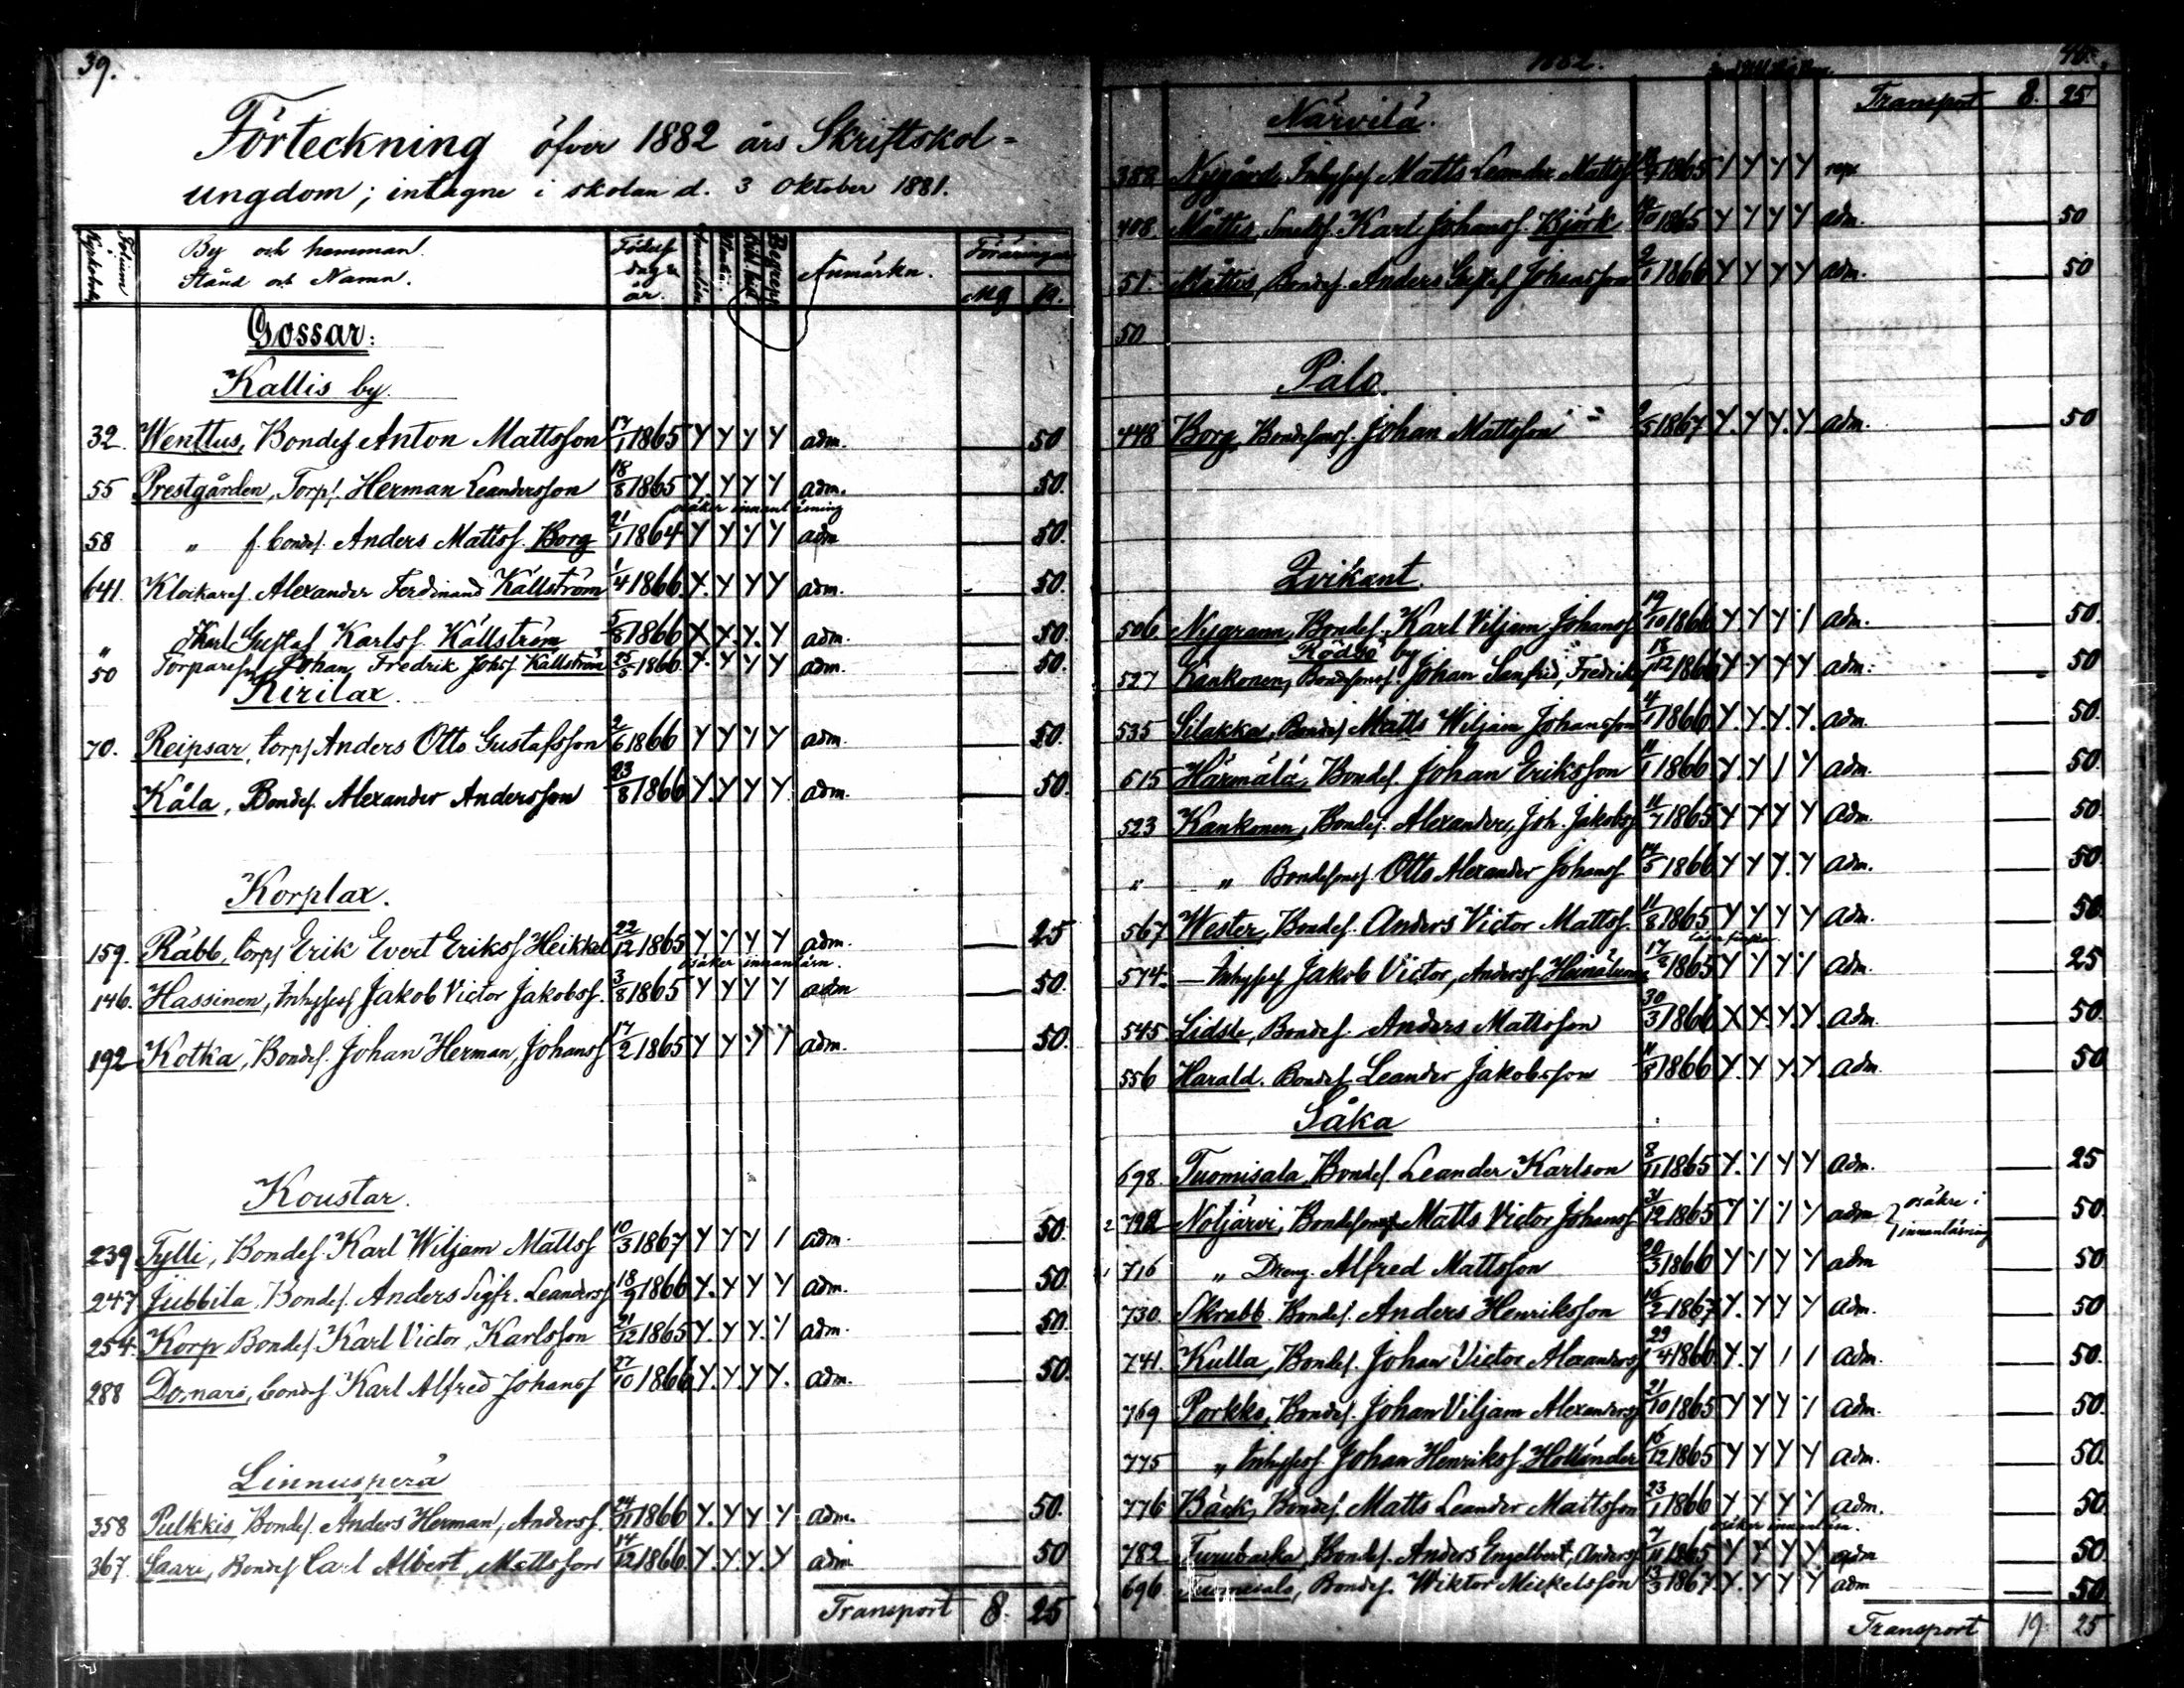 39.
Förteckning öfver 1882 års Skriftskol=
ungdom; intagne i skolan d. 3 Oktober 1881.
Folium Kyrkobok By och hemman. Stånd och Namn. Födelse dag o. år. Begrepp Anmärkn. Föräringar Mg p.
Gossar:
Kallis by.
32 Wenttus, Bondes. Anton Mattsson 17/1 1865 Y Y Y Y adm. — 50
55 Prestgården, Torp. Herman Leandersson 18/8 1865 Y Y Y Y adm. — 50.
osäker innanläsning
58 " f. bondes. Anders Mattss. Borg 21/1 1864 Y Y Y Y adm — 50.
641. Klockares. Alexander Ferdinand Källström 1/4 1866 Y Y Y Y adm. - 50.
" Karl Gustaf Karlss. Källström 5/8 1866 Y Y Y Y adm. — 50.
50 Torparesn Johan Fredrik Johss Källström 25/5 1866 Y Y Y Y adm. — 50.
Ririlax.
70. Reipsar, torps Anders Otto Gustafsson 2/6 1866 Y Y Y Y adm. — 50.
Kåla, Bondes. Alexander Andersson 23/8 1866 Y Y Y Y adm. — 50.
Korplax.
159. Räbb, torps Erik Evert Erikss Heikkel 22/12 1865 Y Y Y Y adm. — 25
osäker innanläsn.
146. Hassinen, Inhysess Jakob Victor Jakobss. 3/8 1865 Y Y Y Y adm — 50.
192 Kotka, Bondes. Johan Herman, Johanss 17/2 1865 Y Y Y Y adm. — 50.
Koustar.
239 Tylli, Bondes. Karl Wiljam Mattss 10/3 1867 Y Y Y 1 adm. — 50.
247 Jubbila, Bondes. Anders Sigfr. Leanderss 18/9 1866 Y Y Y Y adm. — 50.
254. Korp Bondes. Karl Victor, Karlsson 21/12 1865 Y Y Y 1 adm. — 50.
288 Domars, bondes Karl Alfred Johanss 27/10 1866 Y Y Y Y adm. — 50.
Linnusperä
358 Pulkkis, Bondes. Anders Herman, Anderss. 24/11 1866 Y Y Y Y adm. — 50.
367. Saari, Bondes Carl Albert, Mattsson 14/12 1866 Y Y Y Y adm. — 50
Transport 8. 25
1882. 40.
Transport 8. 25
Närvilä.
388 Nygård, Inhyses Matts Leander Mattss 1865 Y Y Y Y rep.
408 Måttus, Smeds. Karl Johanss. Björk 1865 Y Y Y Y adm. 50
51. Måttus, Bondes. Anders Gustaf Johansson 9/1 1866 Y Y Y Y adm. 50
50
Palo.
448 Borg Bondesons. Johan Mattsson 1867 Y Y Y Y adm. 50
Qvikant.
506 Nygrann, Bondes. Karl Viljam Johanss 19/10 1866 Y Y Y 1 adm. — 50.
Rödsö by
527 Kankonen, Bondesons. Johan Sanfrid, Fredrikss 18/12 1866 Y Y Y Y adm. — 50
535 Silakka, Bondes Matts Wiljam Johansson 1866 Y Y Y Y adm. — 50.
615 Härmälä, Bondes. Johan Eriksson 11/1 1866 Y Y 1 Y adm. — 50.
523 Kankonen, Bondes. Alexander, Joh. Jakobss 1865 Y Y Y Y adm. — 50.
" " Bondesons. Otto Alexander Johanss. 14/5 1866 Y Y Y Y adm. — 50.
567 Wester, Bondes. Anders Victor Mattss. 11/8 1865 Y Y Y Y adm. — 50.
574. — Inhyses Jakob Victor, Anderss. 17/8 1865 Y Y Y Y adm. — 25
545 Lidste, Bondes. Anders Mattsson 30/3 1866 Y Y Y Y adm. — 50.
556 Harald. Bondes. Leander Jakobsson 1866 Y Y Y Y adm. — 50
Såka
698. Tuomisala, Bondes. Leander Karlson 8/11 1865 Y Y Y Y adm. — 25
2 Notjärvi, Bondesons Matts Victor Johanss 31/12 1865 Y Y Y Y adm } osäkre i — 50.
1 716 " Dreng. Alfred Mattsson 20/3 1866 Y Y Y Y adm } innanläsning — 50
730. Skrabb. Bondes. Anders Henriksson 16/2 1867 Y Y Y Y adm. — 50
741. Kulla, Bondes. Johan Victor Alexanderss 29/4 1866 Y Y 1 1 adm. — 50.
769 Porkko, Bondes. Johan Viljam Alexanderss 21/10 1865 Y Y Y 1 adm. — 50.
775 " Inhysess Johan Henrikss Holländer 16/12 1865 Y Y Y Y adm. — 50.
776 Bäck, Bondes. Matts Leander Mattsson 23/1 1866 Y Y Y Y adm. — 50.
osäker innanläsn.
782 Furubacka, Bondes. Anders Engelbert, Anderss 7/11 1865 Y Y Y Y adm — 50.
696. Tuomisalo, Bondes. Wiktor Mickelsson 13/3 1867 Y Y Y Y adm — 50.
Transport 19. 25